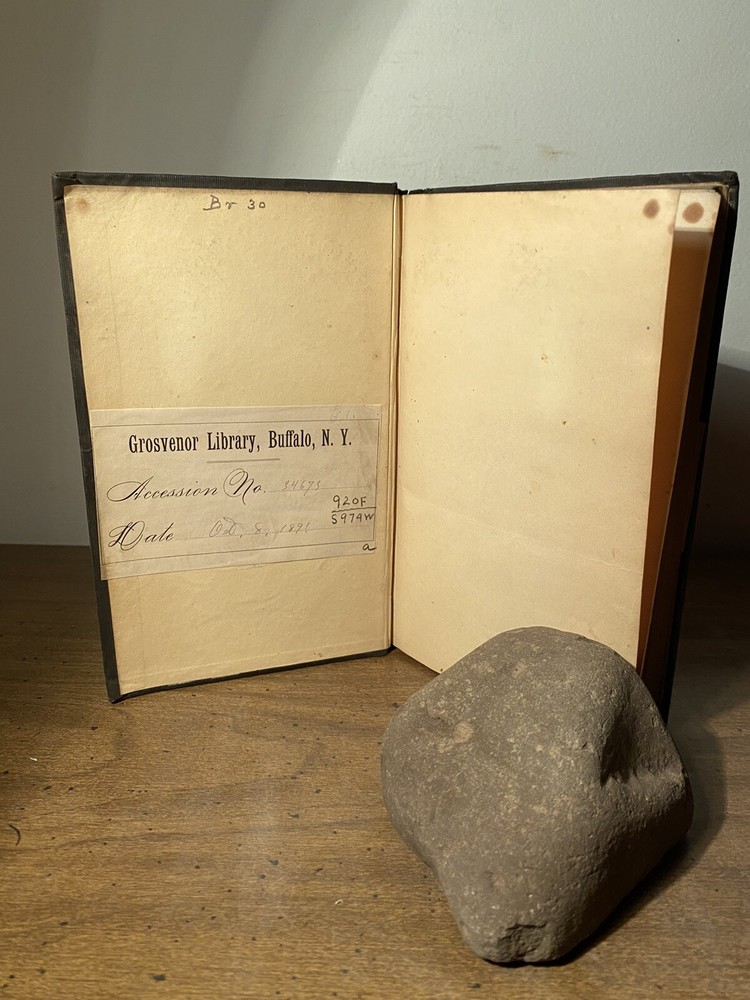 Br 30
Grosvenor Library, Buffalo, N. Y.
Accession No. 34673
920F
S974W
Date Oct. 8, 1891
a